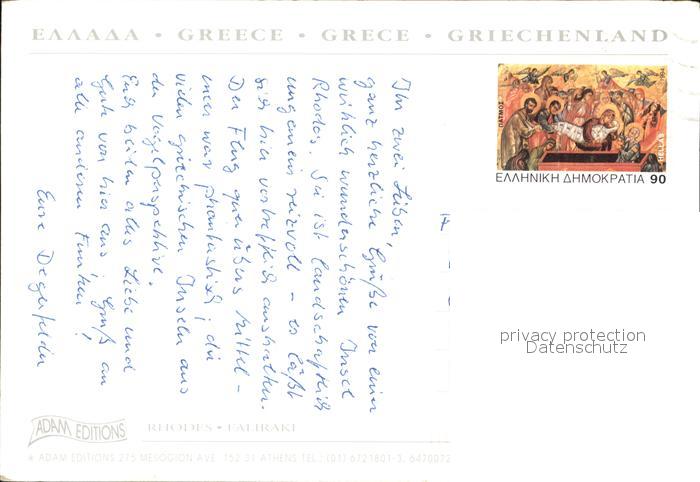 ΕΛΛΑΔΑ • GREECE • GRECE • GRIECHENLAND
ΠΑΤΜΟΣ
1994
HELLAS
ΕΛΛΗΝΙΚΗ ΔΗΜΟΚΡΑΤΙΑ 90
Ihr zwei Lieben,
ganz herzliche Grüße von einer
wirklich wunderschönen Insel
Rhodos. Sie ist landschaftlich
ungemein reizvoll – es läßt
sich hier vortrefflich aushalten.
Der Flug quer übers Mittel-
meer war phantastisch; die
vielen griechischen Inseln aus
der Vogelperspektive.
Euch beiden alles Liebe und
Gute von hier aus; Gruß an
alle anderen Funken!
Eure
privacy protection
Datenschutz
ADAM EDITIONS
RHODES - FALIRAKI
ADAM EDITIONS 275 MESOGION AVE. 152 31 ATHENS TEL.: (01) 6721801-3, 6470072